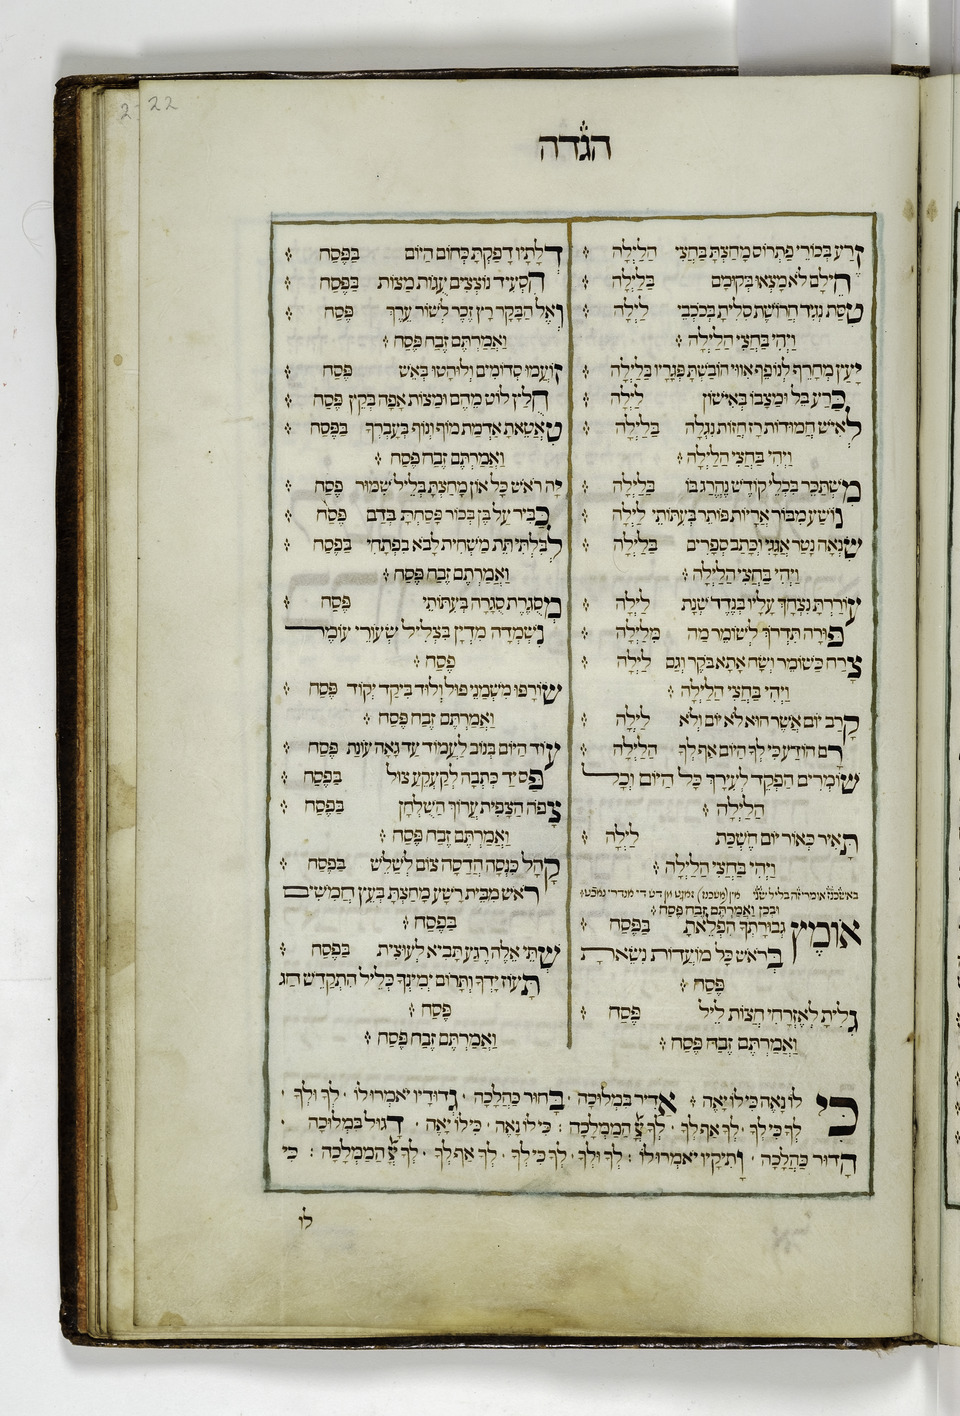 2 22
הגדה
זרע בכורי פתרוס מחצת בחצי הלילה
חילם לא מצאו בקומם בלילה
טסת נגיד חרושת סלית בכוכבי לילה
ויהי בחצי הלילה
יעץ מחרף לנופף אווי הובשת פגריו בלילה
כרע בל ומצבו באישון לילה
לאיש חמודות רז חזות נגלה בלילה
ויהי בחצי הלילה
משתכר בכלי קודש נהרג בו בלילה
נושע מבור אריות פותר בעתותי לילה
שנאה נטר אגגי וכתב ספרים בלילה
ויהי בחצי הלילה
עוררת נצחך עליו בנדד שנת לילה
פורה תדרוך לשומר מה מלילה
צרח כשומר ושח אתא בקר וגם לילה
ויהי בחצי הלילה
קרב יום אשר הוא לא יום ולא לילה
רם הודע כי לך היום אף לך הלילה
שומרים הפקד לעירך כל היום וכל
הלילה
תאיר כאור יום חשכת לילה
ויהי בחצי הלילה
ובכן ואמרתם זבח פסח
אומץ גבורתך הפלאת בפסח
בראש כל מועדות נשאת
פסח
גלית לאזרחי חצות ליל פסח
ואמרתם זבח פסח
דלתיו דפקת כחום היום בפסח
הסעיד נוצצים עגות מצות בפסח
ואל הבקר רץ זכר לשור ערך פסח
ואמרתם זבח פסח
זועמו סדומים ולוהטו באש פסח
חלץ לוט מהם ומצות אפה בקץ פסח
טאטאת אדמת מוף ונוף בעברך בפסח
ואמרתם זבח פסח
יה ראש כל און מחצת בליל שמור פסח
כביר על בן בכור פסחת בדם פסח
לבלתי תת משחית לבא בפתחי בפסח
ואמרתם זבח פסח
מסוגרת סוגרה בעתותי פסח
נשמדה מדין בצליל שעורי עומר
פסח
שורפו משמני פול ולוד ביקד יקוד פסח
ואמרתם זבח פסח
עוד היום בנוב לעמוד עד געה עונת פסח
פס יד כתבה לקעקע צול בפסח
צפה הצפית ערוך השלחן בפסח
ואמרתם זבח פסח
קהל כנסה הדסה צום לשלש בפסח
ראש מבית רשע מחצת בעץ חמישים
בפסח
שתי אלה רגע תביא לעוצית בפסח
תעוז ידך ותרום ימינך כליל התקדש חג
פסח
ואמרתם זבח פסח
כי לו נאה כי לו יאה אדיר במלוכה בחור כהלכה גדודיו יאמרו לו לך ולך
לך כי לך לך אף לך לך יי הממלכה כי לו נאה כי לו יאה דגול במלוכה
הדור כהלכה ותיקיו יאמרו לו לך ולך לך כי לך לך אף לך לך יי הממלכה כי
לו